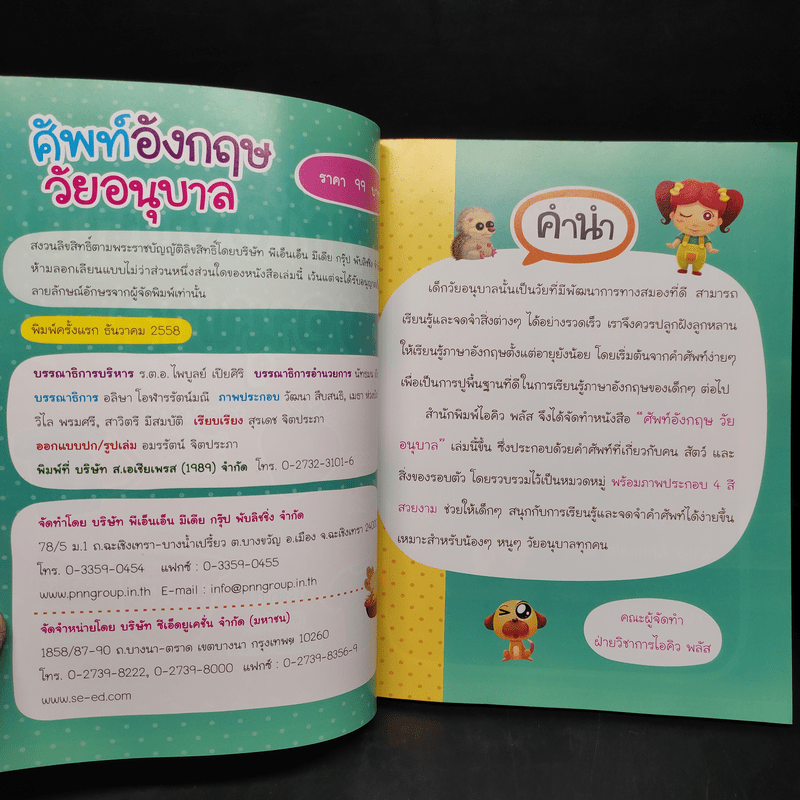 ศัพท์อังกฤษ
วัยอนุบาล
ราคา ๙๙
สงวนลิขสิทธิ์ตามพระราชบัญญัติลิขสิทธิ์โดยบริษัท พีเอ็นเอ็น มีเดีย กรุ๊ป พับลิชชิ่ง
ห้ามลอกเลียนแบบไม่ว่าส่วนหนึ่งส่วนใดของหนังสือเล่มนี้ เว้นแต่จะได้รับอนุญาต
ลายลักษณ์อักษรจากผู้จัดพิมพ์เท่านั้น
พิมพ์ครั้งแรก ธันวาคม 2558
บรรณาธิการบริหาร ร.ต.อ.ไพบูลย์ เปียศิริ บรรณาธิการอำนวยการ
บรรณาธิการ อลิษา โอฬารรัตน์มณี ภาพประกอบ วัฒนา สืบสนธิ์, เมธา
วิไล พรมศรี, สาวิตรี มีสมบัติ เรียบเรียง สุรเดช จิตประภา
ออกแบบปก/รูปเล่ม อมรรัตน์ จิตประภา
พิมพ์ที่ บริษัท ส.เอเชียเพรส (1989) จำกัด โทร. 0-2732-3101-6
จัดทำโดย บริษัท พีเอ็นเอ็น มีเดีย กรุ๊ป พับลิชชิ่ง จำกัด
78/5 ม.1 ถ.ฉะเชิงเทรา-บางน้ำเปรี้ยว ต.บางขวัญ อ.เมือง จ.ฉะเชิงเทรา 2400
โทร. 0-3359-0454 แฟกซ์ : 0-3359-0455
www.pnngroup.in.th E-mail : info@pnngroup.in.th
จัดจำหน่ายโดย บริษัท ซีเอ็ดยูเคชั่น จำกัด (มหาชน)
1858/87-90 ถ.บางนา-ตราด เขตบางนา กรุงเทพฯ 10260
โทร. 0-2739-8222, 0-2739-8000 แฟกซ์ : 0-2739-8356-9
www.se-ed.com
คำนำ
เด็กวัยอนุบาลนั้นเป็นวัยที่มีพัฒนาการทางสมองที่ดี สามารถ
เรียนรู้และจดจำสิ่งต่างๆ ได้อย่างรวดเร็ว เราจึงควรปลูกฝังลูกหลาน
ให้เรียนรู้ภาษาอังกฤษตั้งแต่อายุยังน้อย โดยเริ่มต้นจากคำศัพท์ง่ายๆ
เพื่อเป็นการปูพื้นฐานที่ดีในการเรียนรู้ภาษาอังกฤษของเด็กๆ ต่อไป
สำนักพิมพ์ไอคิว พลัส จึงได้จัดทำหนังสือ “ศัพท์อังกฤษ วัย
อนุบาล” เล่มนี้ขึ้น ซึ่งประกอบด้วยคำศัพท์ที่เกี่ยวกับคน สัตว์ และ
สิ่งของรอบตัว โดยรวบรวมไว้เป็นหมวดหมู่ พร้อมภาพประกอบ 4 สี
สวยงาม ช่วยให้เด็กๆ สนุกกับการเรียนรู้และจดจำคำศัพท์ได้ง่ายขึ้น
เหมาะสำหรับน้องๆ หนูๆ วัยอนุบาลทุกคน
คณะผู้จัดทำ
ฝ่ายวิชาการไอคิว พลัส